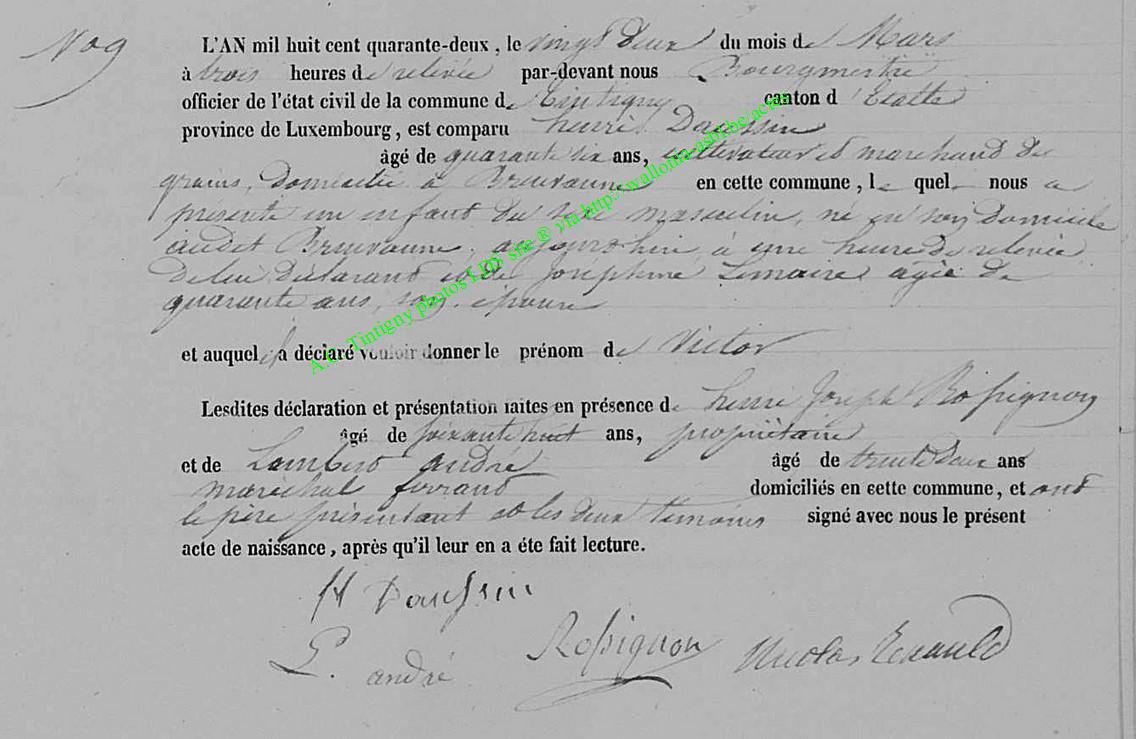 N° 9
L'AN mil huit cent quarante-deux, le vingt deux du mois de Mars
à trois heures de relevée par-devant nous Bourgmestre
officier de l'état civil de la commune de Tintigny canton d'Etalle
province de Luxembourg, est comparu henri Daussin
âgé de quarante six ans, cultivateur et marchand de
grains, domicilié à Breuvanne en cette commune, le quel nous a
présenté un enfant du sexe masculin, né en son domicile
audit Breuvanne aujourd'hui, à une heure de relevée
de lui déclarant et de Joséphine Lemaire agée de
quarante ans, son épouse
et auquel il a déclaré vouloir donner le prénom de Victor
Lesdites déclaration et présentation faites en présence de henri Joseph Rossignon
âgé de soixante huit ans, propriétaire
et de Lambert andré âgé de trente deux ans
maréchal ferrant domiciliés en cette commune, et ont
le père présentant et les deux témoins signé avec nous le présent
acte de naissance, après qu'il leur en a éte fait lecture.
H Daussin
L. andré Rossignon Nicolas Renauld
A.C. Tintigny photos LDS site ® via http://wallonia-asbl.be/actes